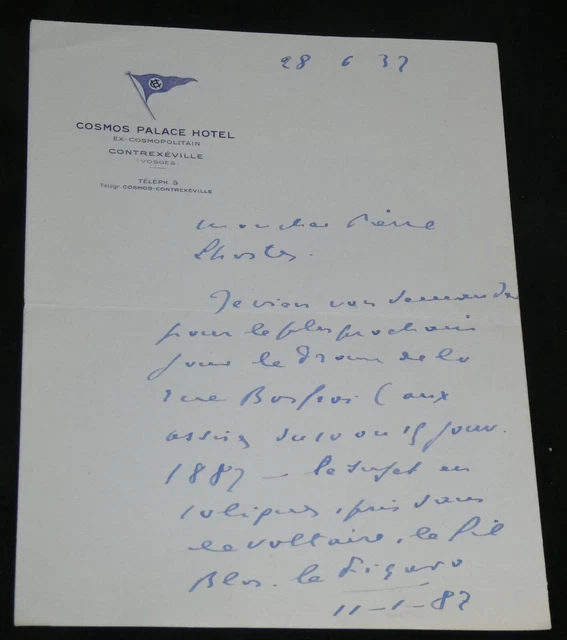 28 6 37
COSMOS PALACE HOTEL
EX-COSMOPOLITAIN
CONTREXÉVILLE
(VOSGES)
TÉLÉPH. 3
Télégr. COSMOS-CONTREXÉVILLE
mon cher Pierre
Lhoste.
Je viens vous demander
pour le plus prochain
jour le Drame de la
rue (aux
assises du 10 au 15 janv.
1887 — le sujet en
10 lignes, pris dans
le Voltaire, le Gil
Blas. le Figaro
11-1-87